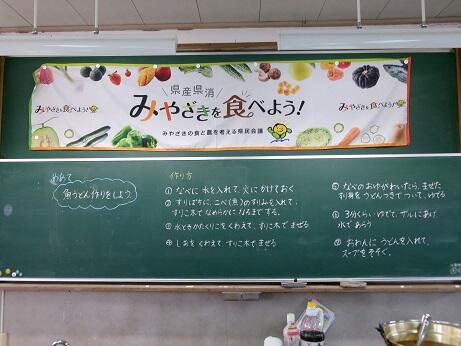 県産県消
みやざきを食べよう!
みやざきの食と農を考える県民会議
みやざきを食べよう!
みやざきを食べよう!
めあて
魚うどん作りをしよう。
作り方
① なべに水を入れて、火にかけておく
② すりばちに、こべ(魚)のすりみを入れて、
すりこ木でなめらかになるまでする。
③ 水ときかたくりこをくわえて、すり木でまぜる
④ しおをくわえて、すりこ木でまぜる
⑤ なべのおゆがわいたら、まぜた
すり身をうどんつきでついて、ゆでる
⑥ 3分くらいゆでて、ザルにあげ
水であらう
⑦ おわんにうどんを入れて、
スープをそそぐ。